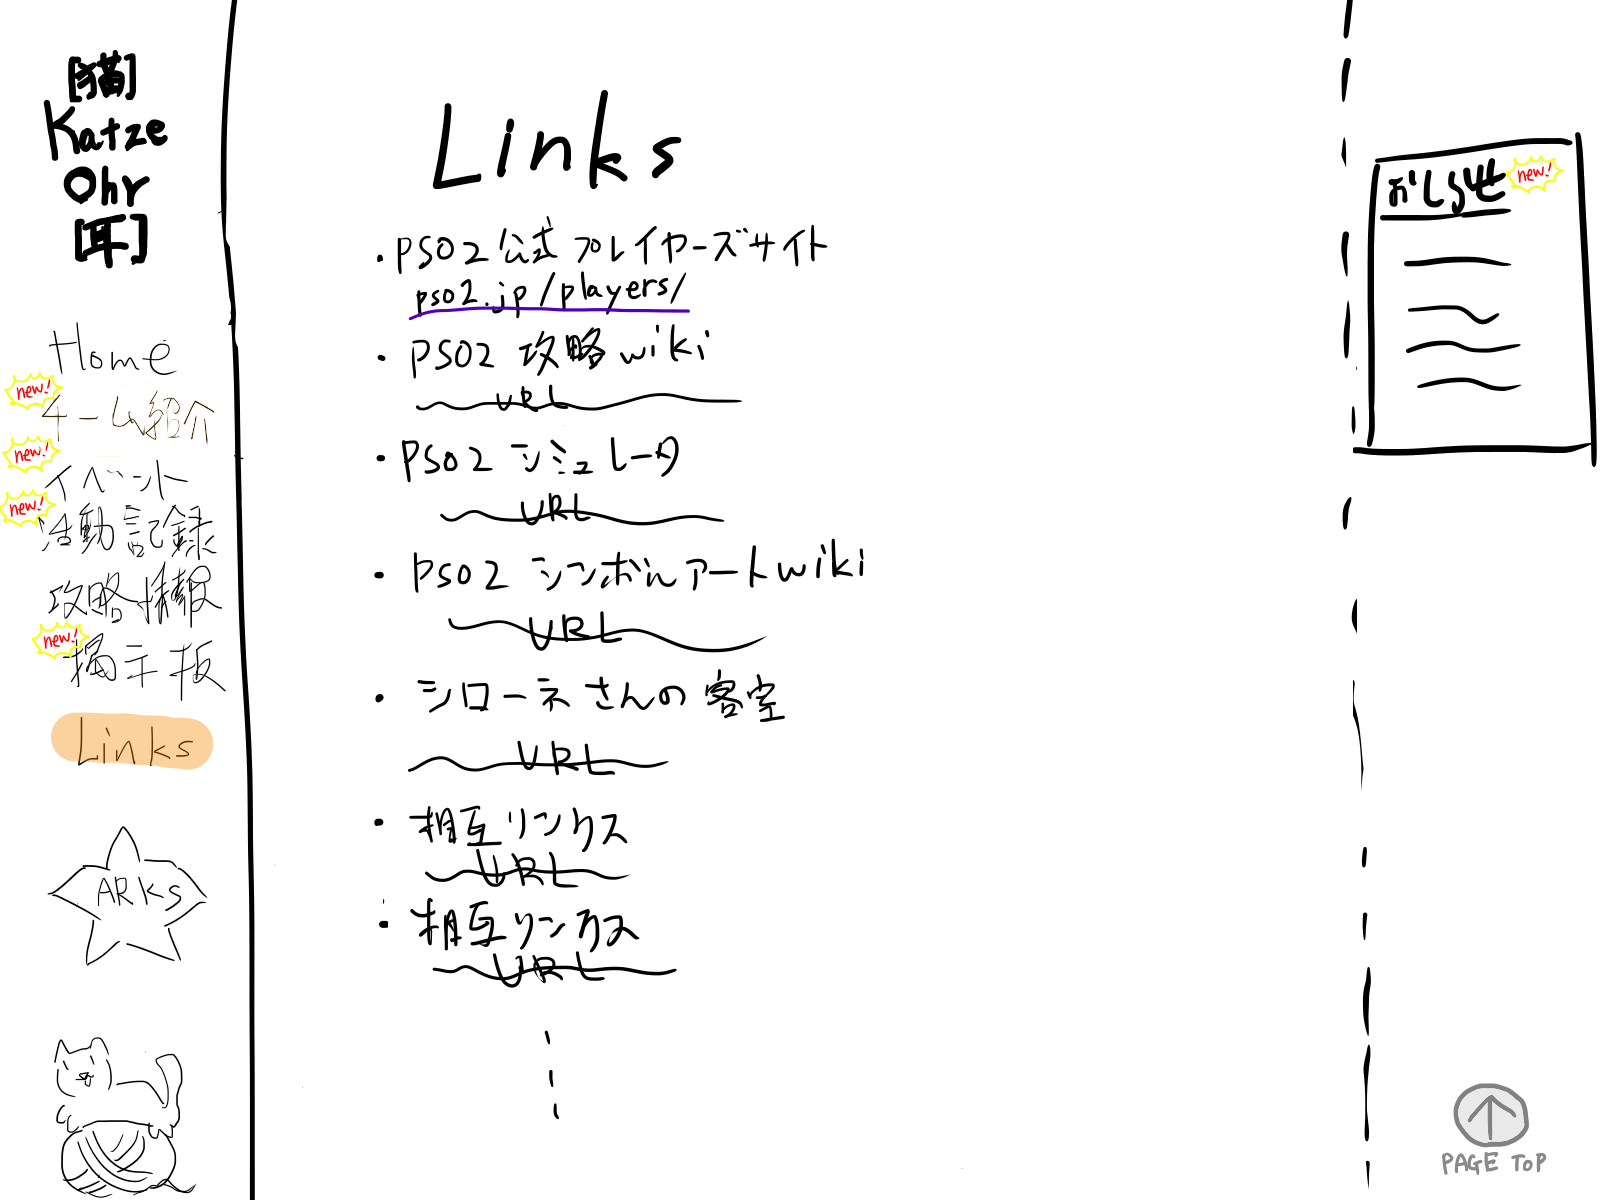 [猫]
Katze
Ohr
[耳]
Home
new!
チーム紹介
new!
イベント
new!
活動記録
攻略情報
new!
掲示板
Links
ARKS
Links
・PSO2公式プレイヤーズサイト
pso2.jp/players/
・PSO2攻略wiki
URL
・PSO2シミュレータ
URL
・PSO2シンボルアートwiki
URL
・シローネさんの客室
URL
・相互リンクス
URL
・相互リンクス
URL
おしらせ new!
PAGE TOP